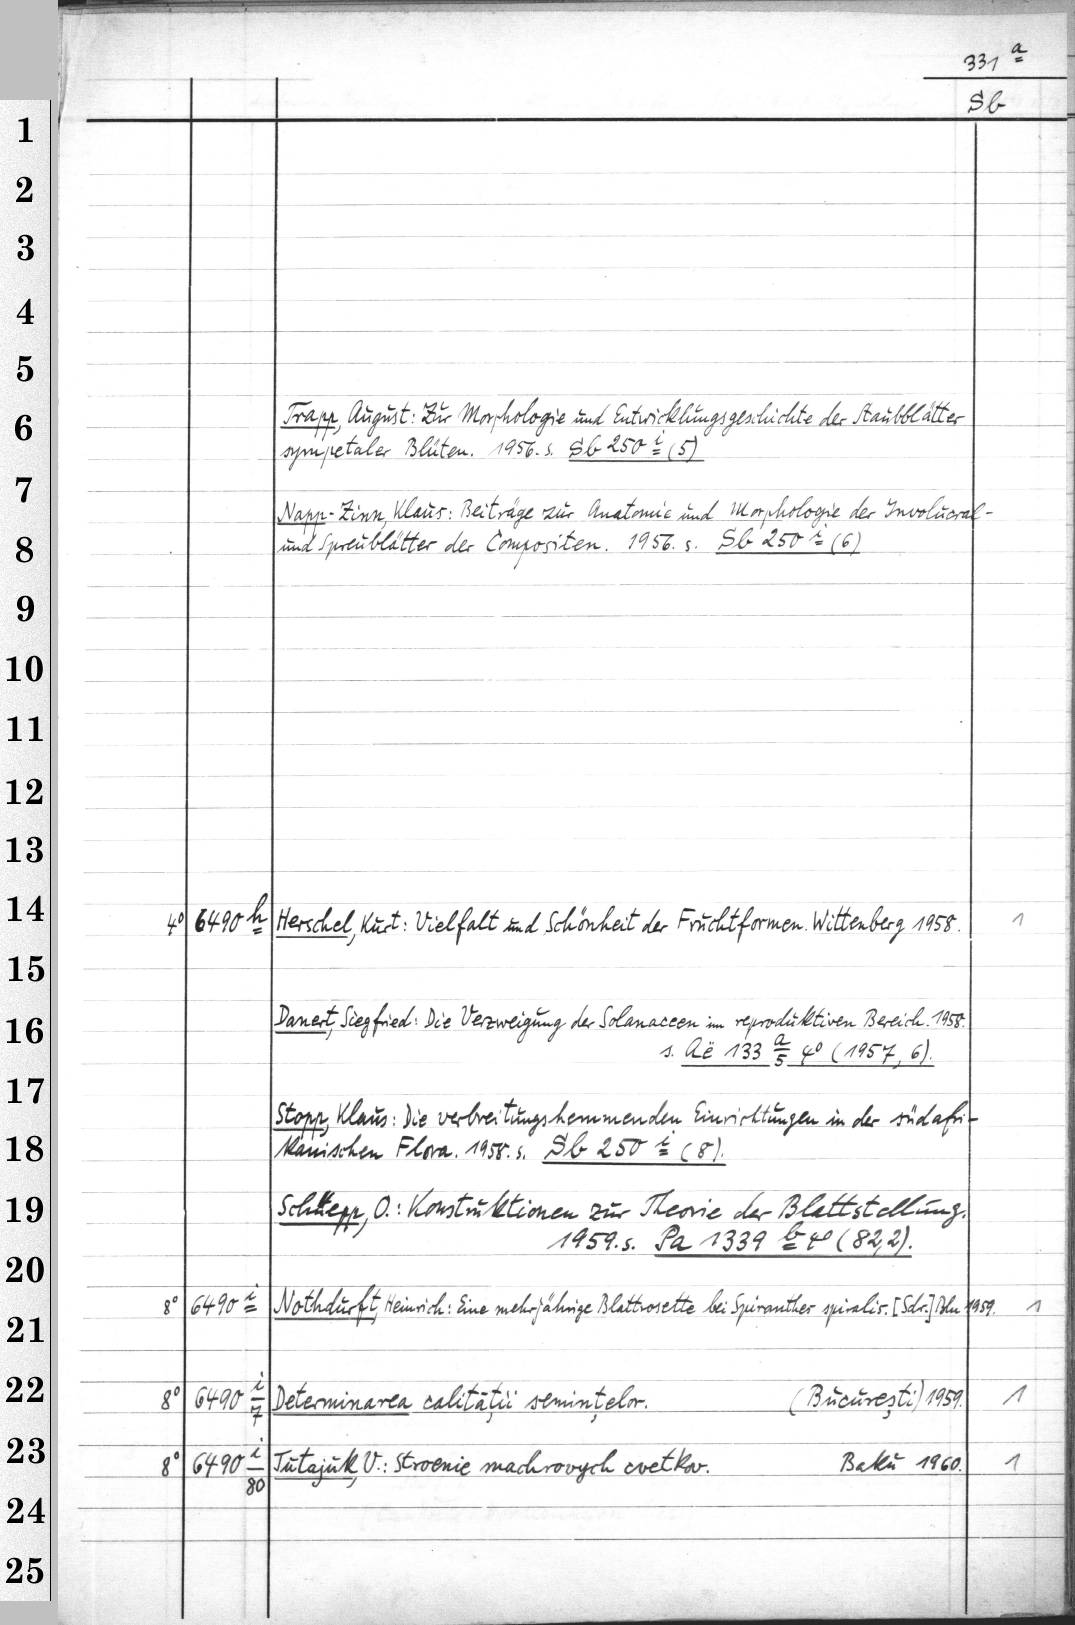 331 a
Sb
1
2
3
4
5
6
7
8
9
10
11
12
13
14
15
16
17
18
19
20
21
22
23
24
25
Trapp, August: Zur Morphologie und Entwicklungsgeschichte der Staubblätter
sympetaler Blüten. 1956. s. Sb 250 i (5)
Napp-Zinn, Klaus: Beiträge zur Anatomie und Morphologie der Involucral-
und Spreublätter der Compositen. 1956. s. Sb 250 i (6)
4° 6490 h Herschel, Kurt: Vielfalt und Schönheit der Fruchtformen. Wittenberg 1958. 1
Danert, Siegfried: Die Verzweigung der Solanaceen im reproduktiven Bereich. 1958.
s. Aë 133 a/5 4° (1957, 6).
Stopp, Klaus: Die verbreitungshemmenden Einrichtungen in der südafri-
kanischen Flora. 1958. s. Sb 250 i (8).
Schüepp, O.: Konstruktionen zur Theorie der Blattstellung.
1959. s. Pa 1339 b 4° (82,2).
8° 6490 i Nothdurft, Heinrich: Eine mehrjährige Blattrosette bei Spiranthes spiralis. [Sdr.] Bln 1959. 1
8° 6490 i/7 Determinarea calităţii seminţelor. (Bucureşti) 1959. 1
8° 6490 i/80 Tutajuk, V.: Stroenie machrovych cvetkov. Baku 1960. 1